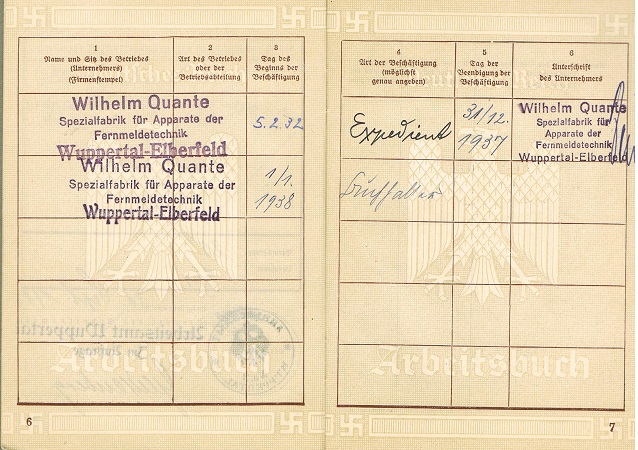 1
Name und Sitz des Betriebes
(Unternehmers)
(Firmenstempel)
2
Art des Betriebes
oder der
Betriebsabteilung
3
Tag des
Beginns der
Beschäftigung
Wilhelm Quante
Spezialfabrik für Apparate der
Fernmeldetechnik
Wuppertal-Elberfeld
5.2.32
Wilhelm Quante
Spezialfabrik für Apparate der
Fernmeldetechnik
Wuppertal-Elberfeld
1/1.
1938
Arbeitsamt Wuppertal
6
4
Art der Beschäftigung
(möglichst
genau angeben)
5
Tag der
Beendigung der
Beschäftigung
6
Unterschrift
des Unternehmers
Expedient
31/12.
1937
Wilhelm Quante
Spezialfabrik für
Apparate der
Fernmeldetechnik
Wuppertal-Elberfeld
Buchhalter
Arbeitsbuch
7